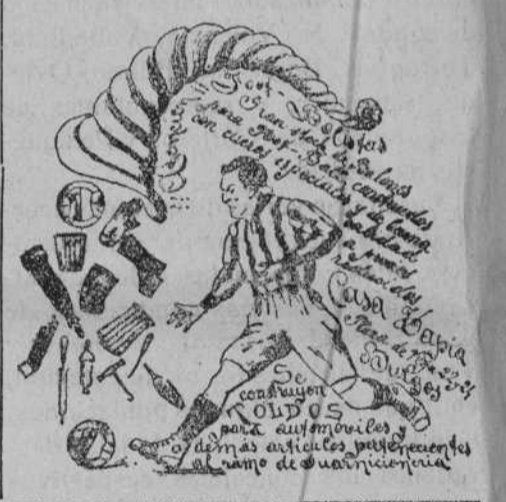 ¡¡¡Atención!!! Foot-Balistas
Gran stock de balones
para Foot-Ball construidos
con cueros especiales y de buena
calidad
a precios
reducidos
Casa Tapia
Plaza de 22 y 24
Burgos
Se
construyen
TOLDOS
para automóviles y
demás artículos pertenecientes
al ramo de Guarnicionería